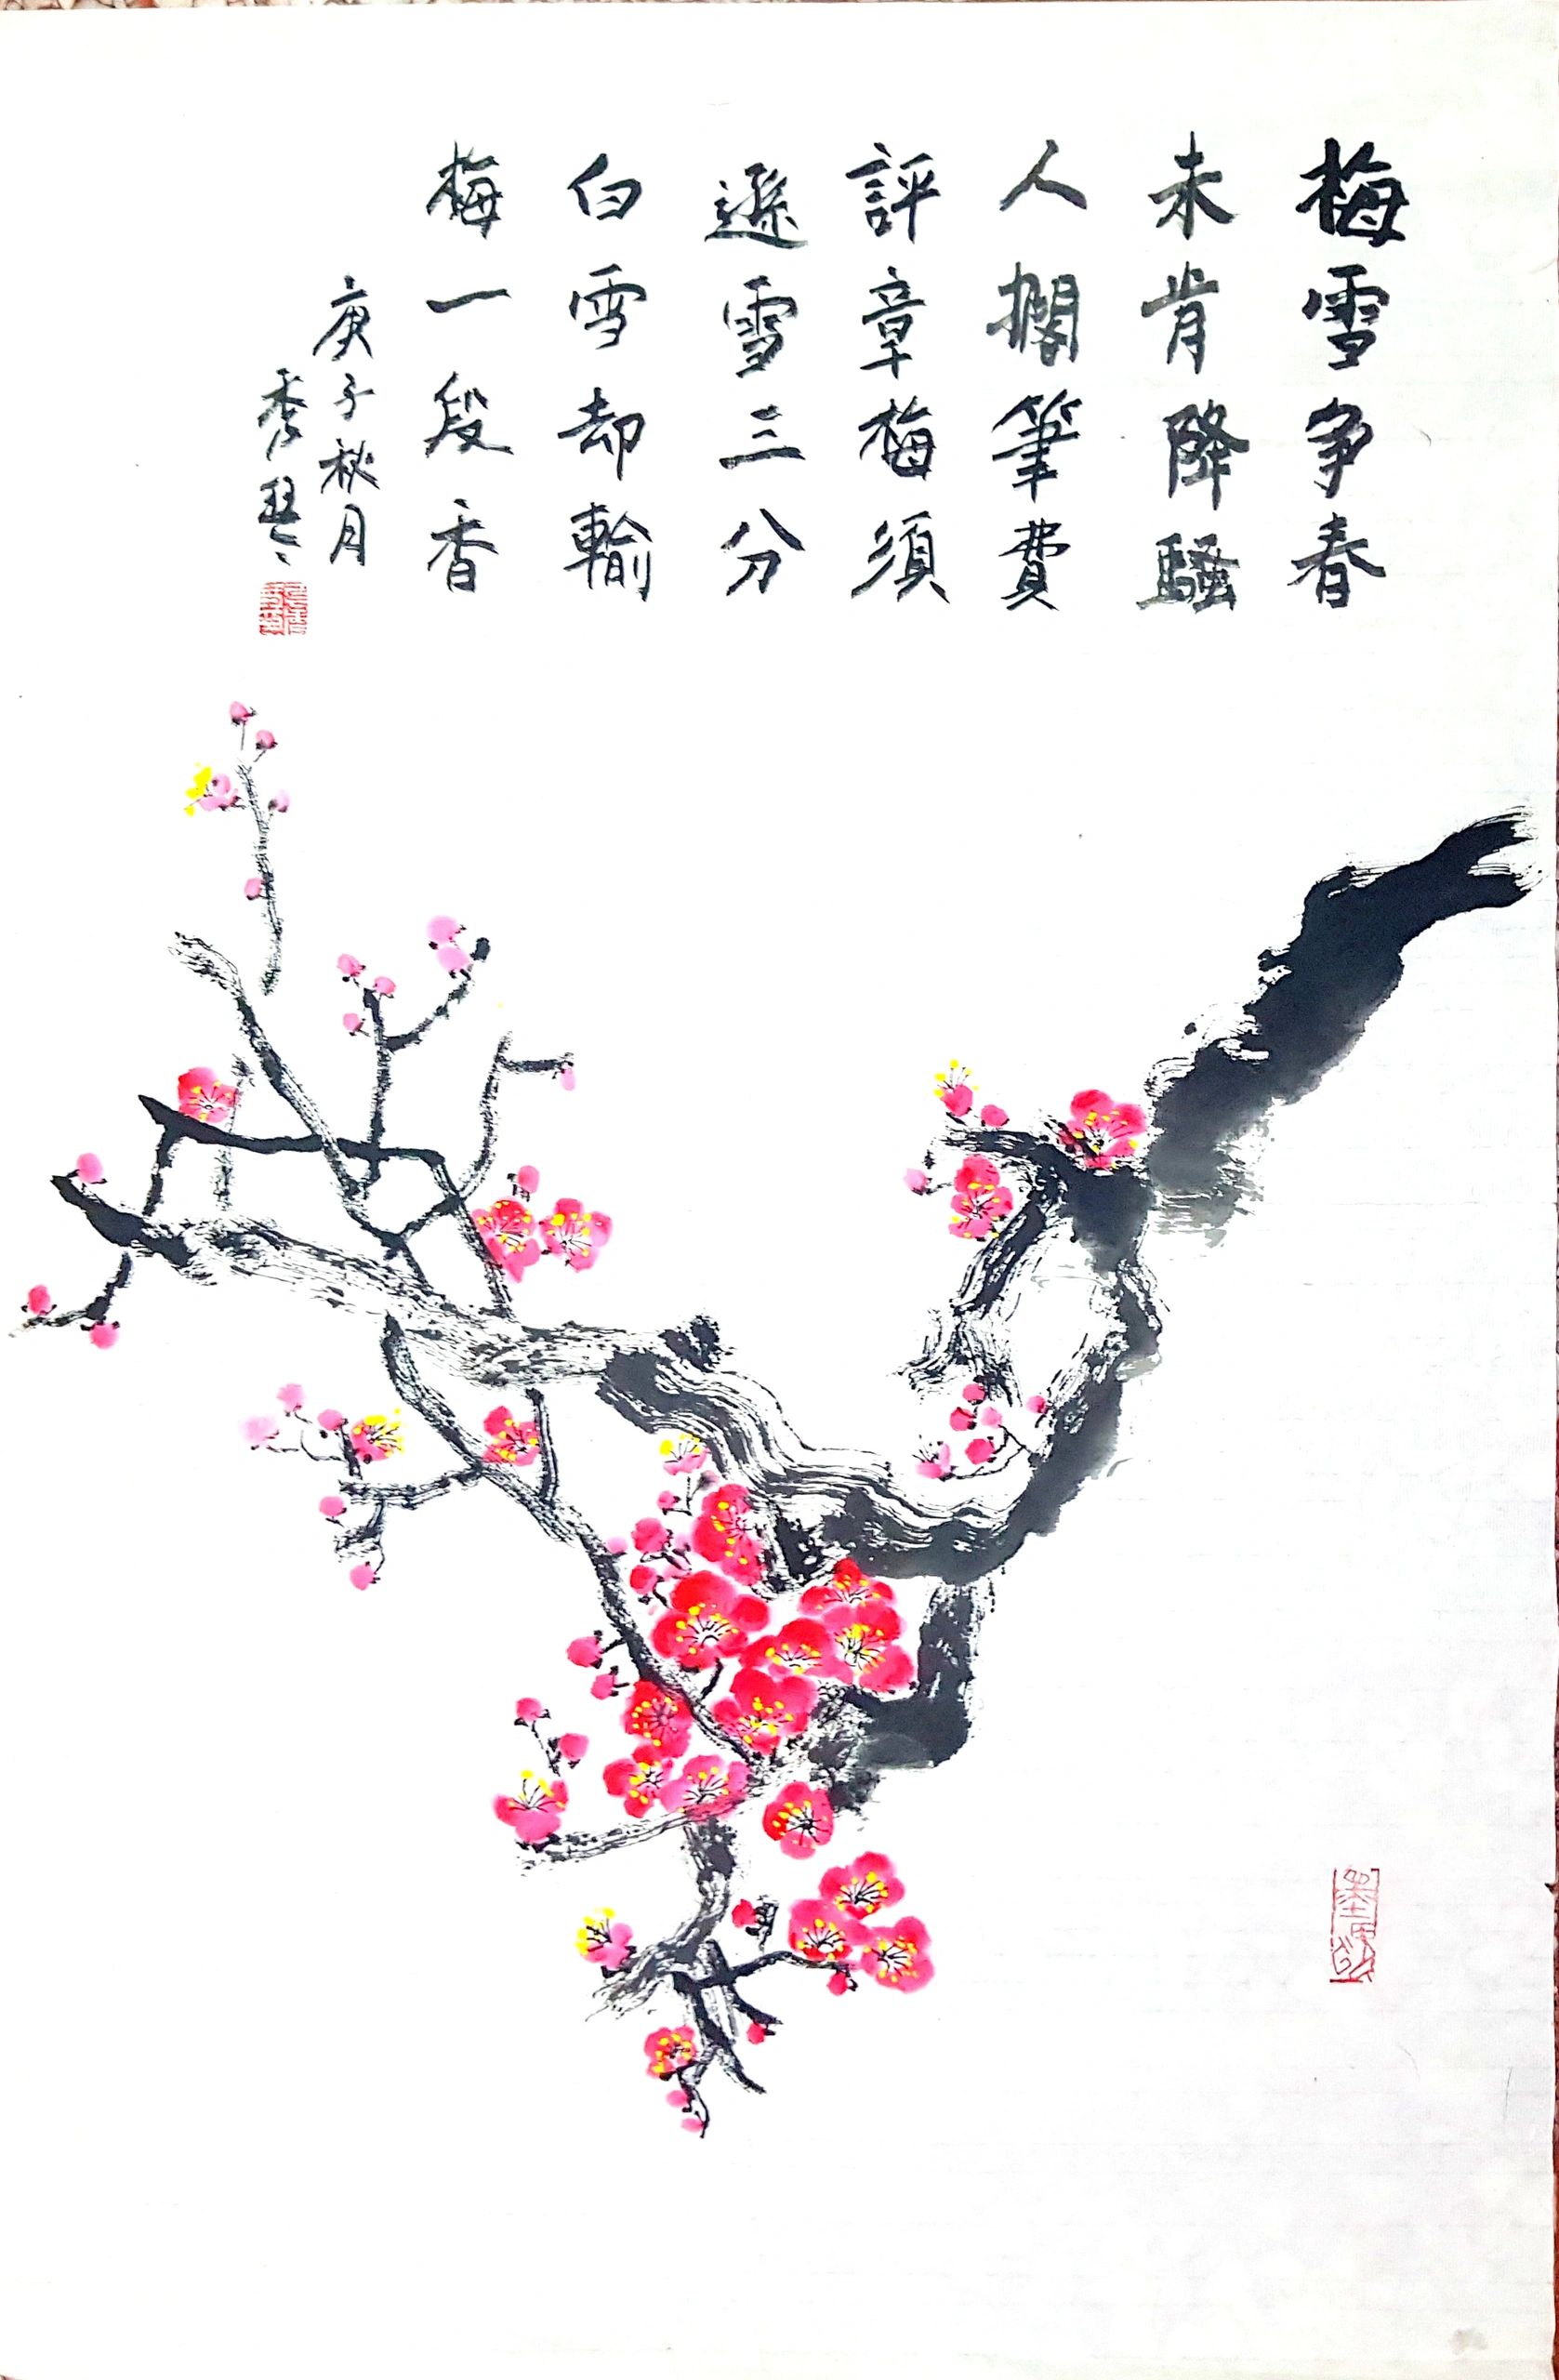 梅雪争春
未肯降騷
人擱筆費
評章梅須
遜雪三分
白雪却輸
梅一段香
庚子秋月
秀琴